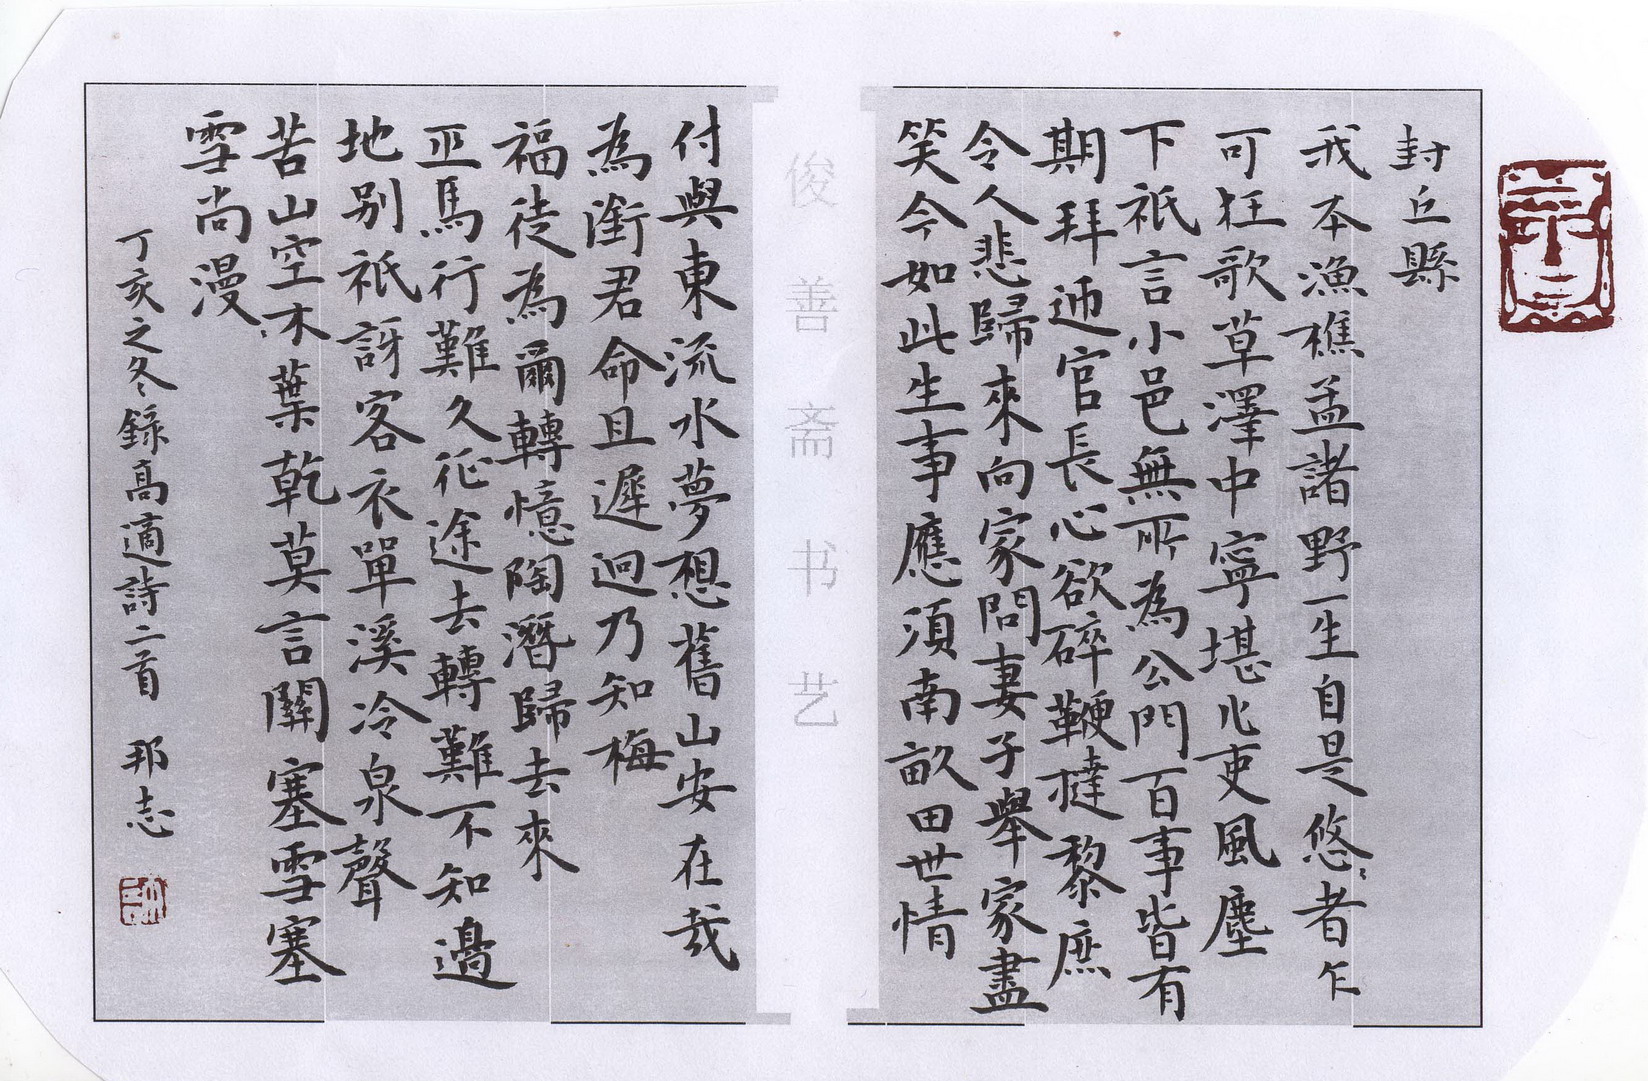 封丘縣
我本漁樵孟諸野一生自是悠〻者乍
可狂歌草澤中寧堪作吏風塵
下祇言小邑無所為公門百事皆有
期拜迎官長心欲碎鞭撻黎庶
令人悲歸來向家問妻子舉家盡
笑今如此生事應須南畝田世情
俊善斋书艺
付與東流水夢想舊山安在哉
為銜君命且遲迴乃知梅
福徒為爾轉憶陶潛歸去來
匹馬行難久征途去轉難不知邊
地別祇訝客衣單溪冷泉聲
苦山空木葉乾莫言關塞雪塞
雪尚漫
丁亥之冬錄高適詩二首 邦志